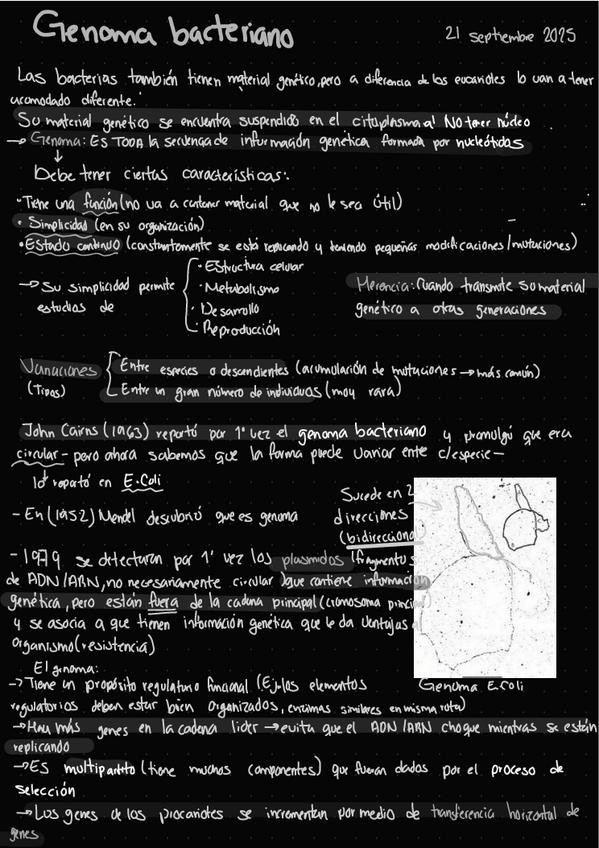 Genoma bacteriano
21 septiembre 2025
Las bacterias también tienen material genético, pero a diferencia de los eucariotes lo van a tener
acomodado diferente.
Su material genético se encuentra suspendido en el citoplasma al NO tener núcleo
→ Genoma: ES TODA la secuencia de información genética formada por nucleótidos
↓
Debe tener ciertas características:
• Tiene una función (no va a contener material que no le sea útil)
• Simplicidad (en su organización)
• Estado continuo (constantemente se está replicando y teniendo pequeñas modificaciones/mutaciones)
→ Su simplicidad permite
estudios de
• Estructura celular
• Metabolismo
• Desarrollo
• Reproducción
Herencia: Cuando transmite su material
genético a otras generaciones
Variaciones
(Tipos)
Entre especies o descendientes (acumulación de mutaciones → más común)
Entre un gran número de individuos (muy rara)
John Cairns (1963) reportó por 1ª vez el genoma bacteriano y promulgó que era
circular - pero ahora sabemos que la forma puede variar ente c/especie -
reportó en E.Coli
- En (1952) descubrió que es genoma
Sucede en 2
direcciones
(bidireccional
- 1979 se detectaron por 1ª vez los plasmidos (fragmentos
de ADN/ARN, no necesariamente circular) que contiene información
genética, pero están fuera de la cadena principal (cromosoma principal
y se asocia a que tienen información genética que le da ventajas
organismo (resistencia)
Genoma E.coli
El genoma:
→ Tiene un propósito regulatorio funcional (Ej. los elementos
regulatorios deben estar bien organizados, enzimas similares en misma ruta)
→ Hay más genes en la cadena lider → evita que el ADN/ARN choque mientras se están
replicando
→ ES multipartito (tiene muchos componentes) que fueron dados por el proceso de
selección
→ Los genes de los procariotes se incrementan por medio de transferencia horizontal de
genes